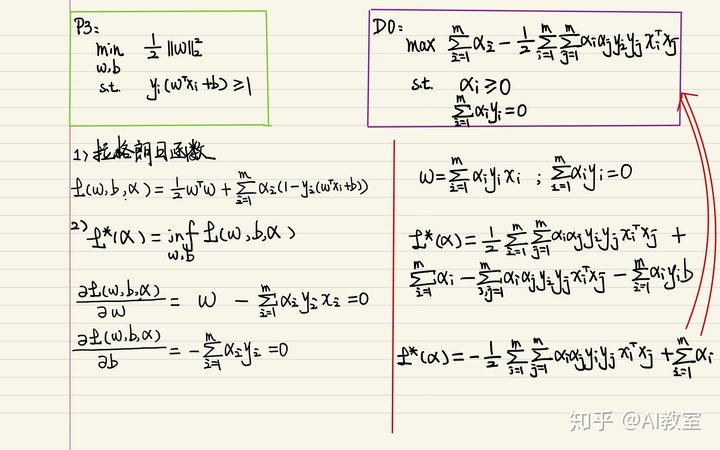 P3:
min 1/2 ||w||₂²
w,b
s.t. yᵢ(wᵀxᵢ+b) ≥ 1
D0:
max ∑ᵢ₌₁ᵐ αᵢ - 1/2 ∑ᵢ₌₁ᵐ ∑ⱼ₌₁ᵐ αᵢαⱼyᵢyⱼxᵢᵀxⱼ
s.t. αᵢ ≥ 0
∑ᵢ₌₁ᵐ αᵢyᵢ = 0
1) 拉格朗日函数
£(w,b,α) = 1/2 wᵀw + ∑ᵢ₌₁ᵐ αᵢ(1-yᵢ(wᵀxᵢ+b))
2) £*(α) = inf £(w,b,α)
w,b
∂£(w,b,α)/∂w = w - ∑ᵢ₌₁ᵐ αᵢyᵢxᵢ = 0
∂£(w,b,α)/∂b = -∑ᵢ₌₁ᵐ αᵢyᵢ = 0
w = ∑ᵢ₌₁ᵐ αᵢyᵢxᵢ ; ∑ᵢ₌₁ᵐ αᵢyᵢ = 0
£*(α) = 1/2 ∑ᵢ₌₁ᵐ ∑ⱼ₌₁ᵐ αᵢαⱼyᵢyⱼxᵢᵀxⱼ +
∑ᵢ₌₁ᵐ αᵢ - ∑ᵢ,ⱼ₌₁ᵐ αᵢαⱼyᵢyⱼxᵢᵀxⱼ - ∑ᵢ₌₁ᵐ αᵢyᵢb
£*(α) = -1/2 ∑ᵢ₌₁ᵐ ∑ⱼ₌₁ᵐ αᵢαⱼyᵢyⱼxᵢᵀxⱼ + ∑ᵢ₌₁ᵐ αᵢ
知乎 @AI教室